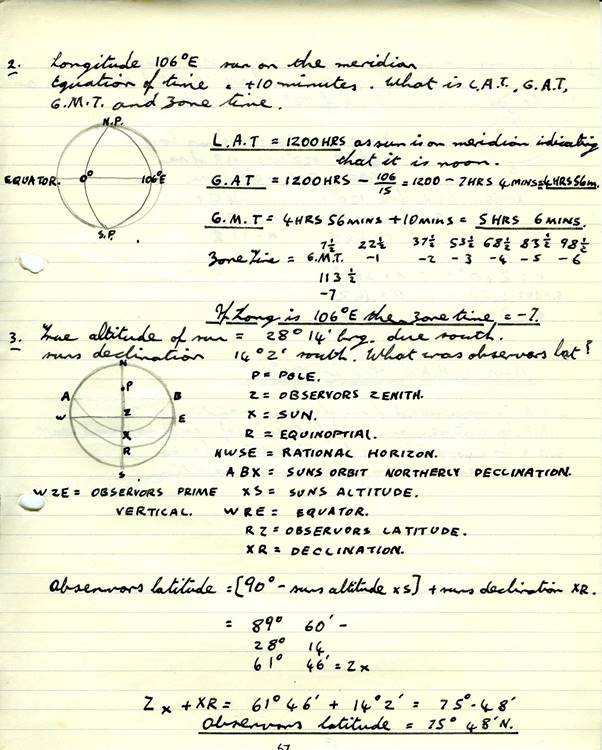 2. Longitude 106°E sun on the meridian
Equation of time = +10 minutes. What is L.A.T., G.A.T,
G.M.T. and Zone time.
N.P.
EQUATOR. 0° 106°E
S.P.
L.A.T = 1200 HRS as sun is on meridian indicating
that it is noon.
G.A.T = 1200 HRS - 106/15 = 1200 - 7 HRS 4 MINS = 4 HRS 56 m.
G.M.T = 4 HRS 56 MINS + 10 MINS = 5 HRS 6 MINS.
7½ 22½ 37½ 53½ 68½ 83½ 98½
Zone Time = G.M.T. -1 -2 -3 -4 -5 -6
113½
-7
If Long is 106°E then Zone time = -7.
3. True altitude of sun = 28° 14' brg. due south.
suns declination 14° 2' south. What was observors lat?
P
A B
W Z E
X
R
S
P = POLE.
Z = OBSERVORS ZENITH.
X = SUN.
R = EQUINOPTIAL.
NWSE = RATIONAL HORIZON.
ABX = SUNS ORBIT NORTHERLY DECLINATION.
WZE = OBSERVORS PRIME XS = SUNS ALTITUDE.
VERTICAL. WRE = EQUATOR.
RZ = OBSERVORS LATITUDE.
XR = DECLINATION.
Observors latitude = [90° - suns altitude XS] + suns declination XR.
= 89° 60' -
28° 14
61° 46' = Zx
Zx + XR = 61° 46' + 14° 2' = 75° - 48'
Observors latitude = 75° 48' N.
67